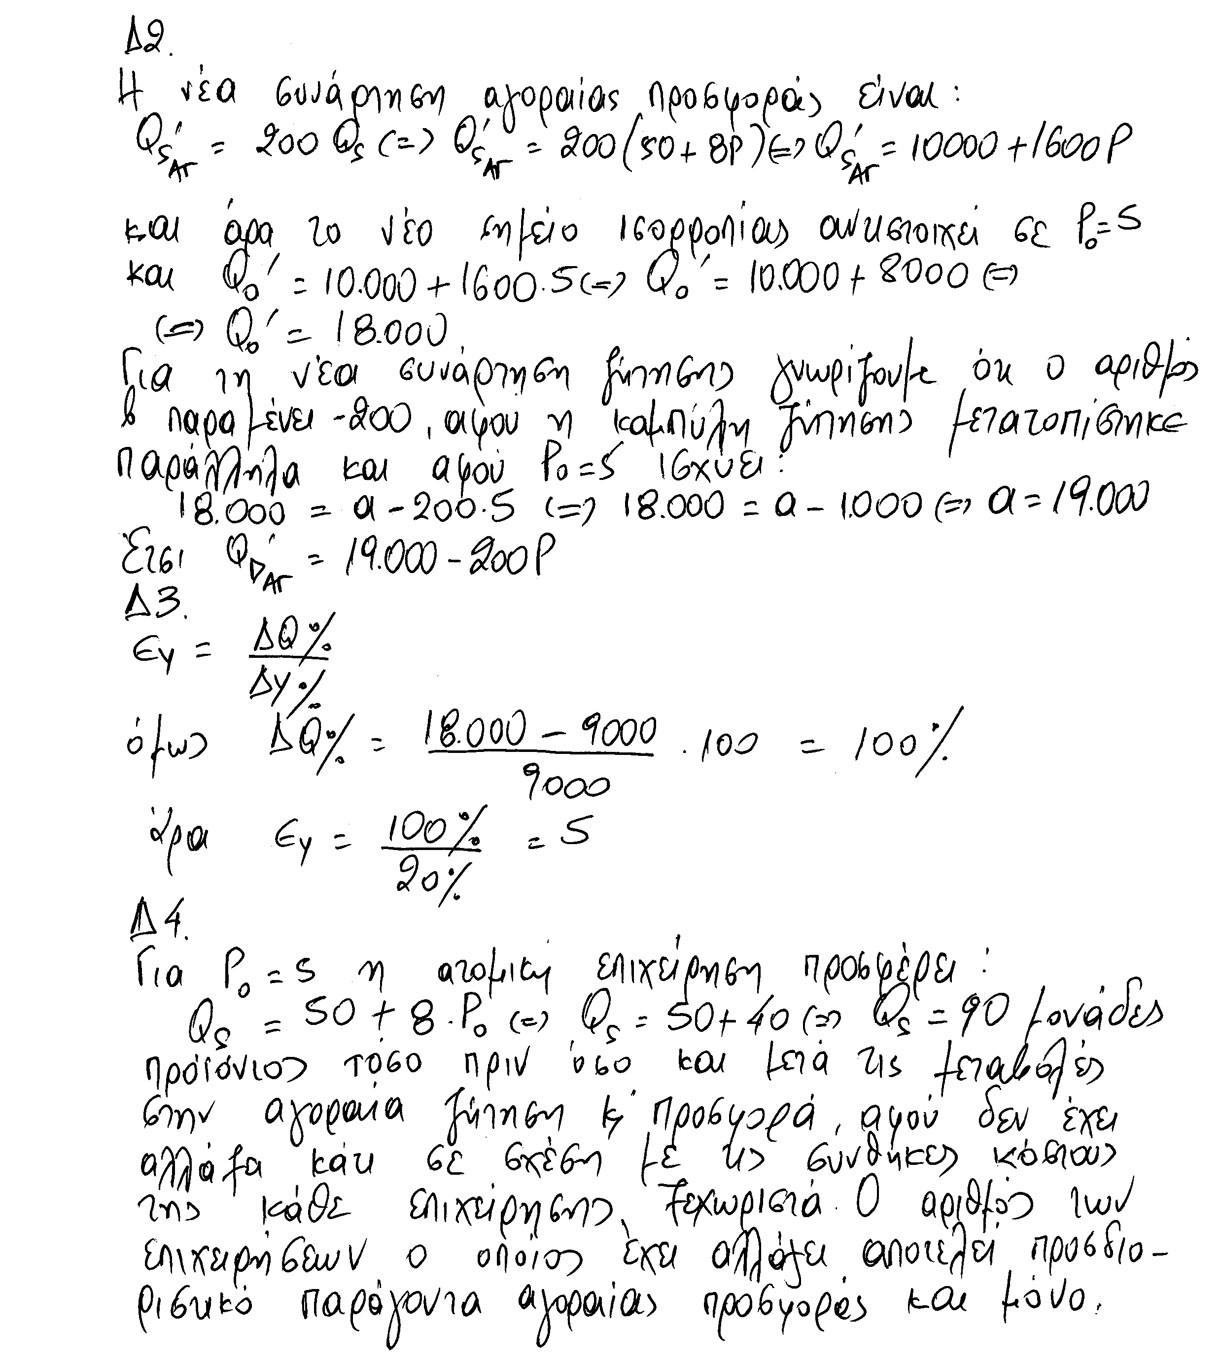 Δ2.
Η νέα συνάρτηση αγοραίας προσφοράς είναι:
Q'sΑΓ = 200 Qs (=) Q'sΑΓ = 200(50+8P) (=) Q'sΑΓ = 10000+1600P
και άρα το νέο σημείο ισορροπίας αντιστοιχεί σε P₀=5
και Q₀' = 10.000+1600·5 (=) Q₀' = 10.000+8000 (=)
(=) Q₀' = 18.000
Για τη νέα συνάρτηση ζήτησης γνωρίζουμε ότι ο αριθμός
β παραμένει -200, αφού η καμπύλη ζήτησης μετατοπίστηκε
παράλληλα και αφού P₀=5 ισχύει:
18.000 = α-200·5 (=) 18.000 = α-1.000 (=) α=19.000
Έτσι Q'DΑΓ = 19.000-200P
Δ3.
εy = ΔQ% / Δy%
όμως ΔQ% = 18.000-9000 / 9000 ·100 = 100%
άρα εy = 100% / 20% = 5
Δ4.
Για P₀=5 η ατομική επιχείρηση προσφέρει:
Qs = 50+8·P₀ (=) Qs = 50+40 (=) Qs = 90 μονάδες
προϊόντος τόσο πριν όσο και μετά τις μεταβολές
στην αγοραία ζήτηση κ' προσφορά, αφού δεν έχει
αλλάξα κάτι σε σχέση με τις συνθήκες κόστους
της κάθε επιχείρησης ξεχωριστά. Ο αριθμός των
επιχειρήσεων ο οποίος έχει αλλάξει αποτελεί προσδιο-
ριστικό παράγοντα αγοραίας προσφοράς και μόνο.